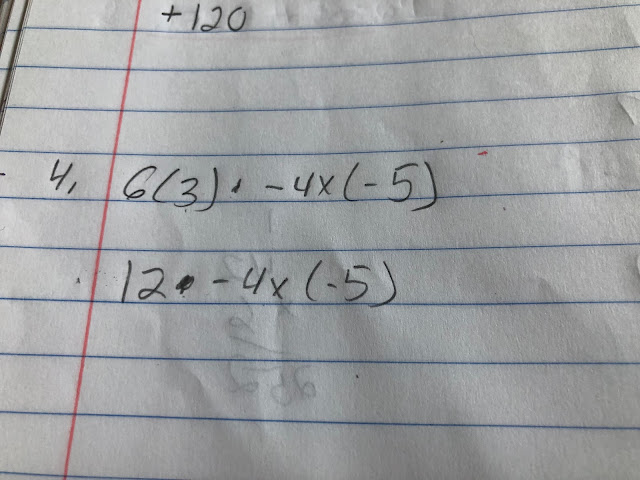 +120
4. 6(3) · -4x(-5)
12 · -4x(-5)